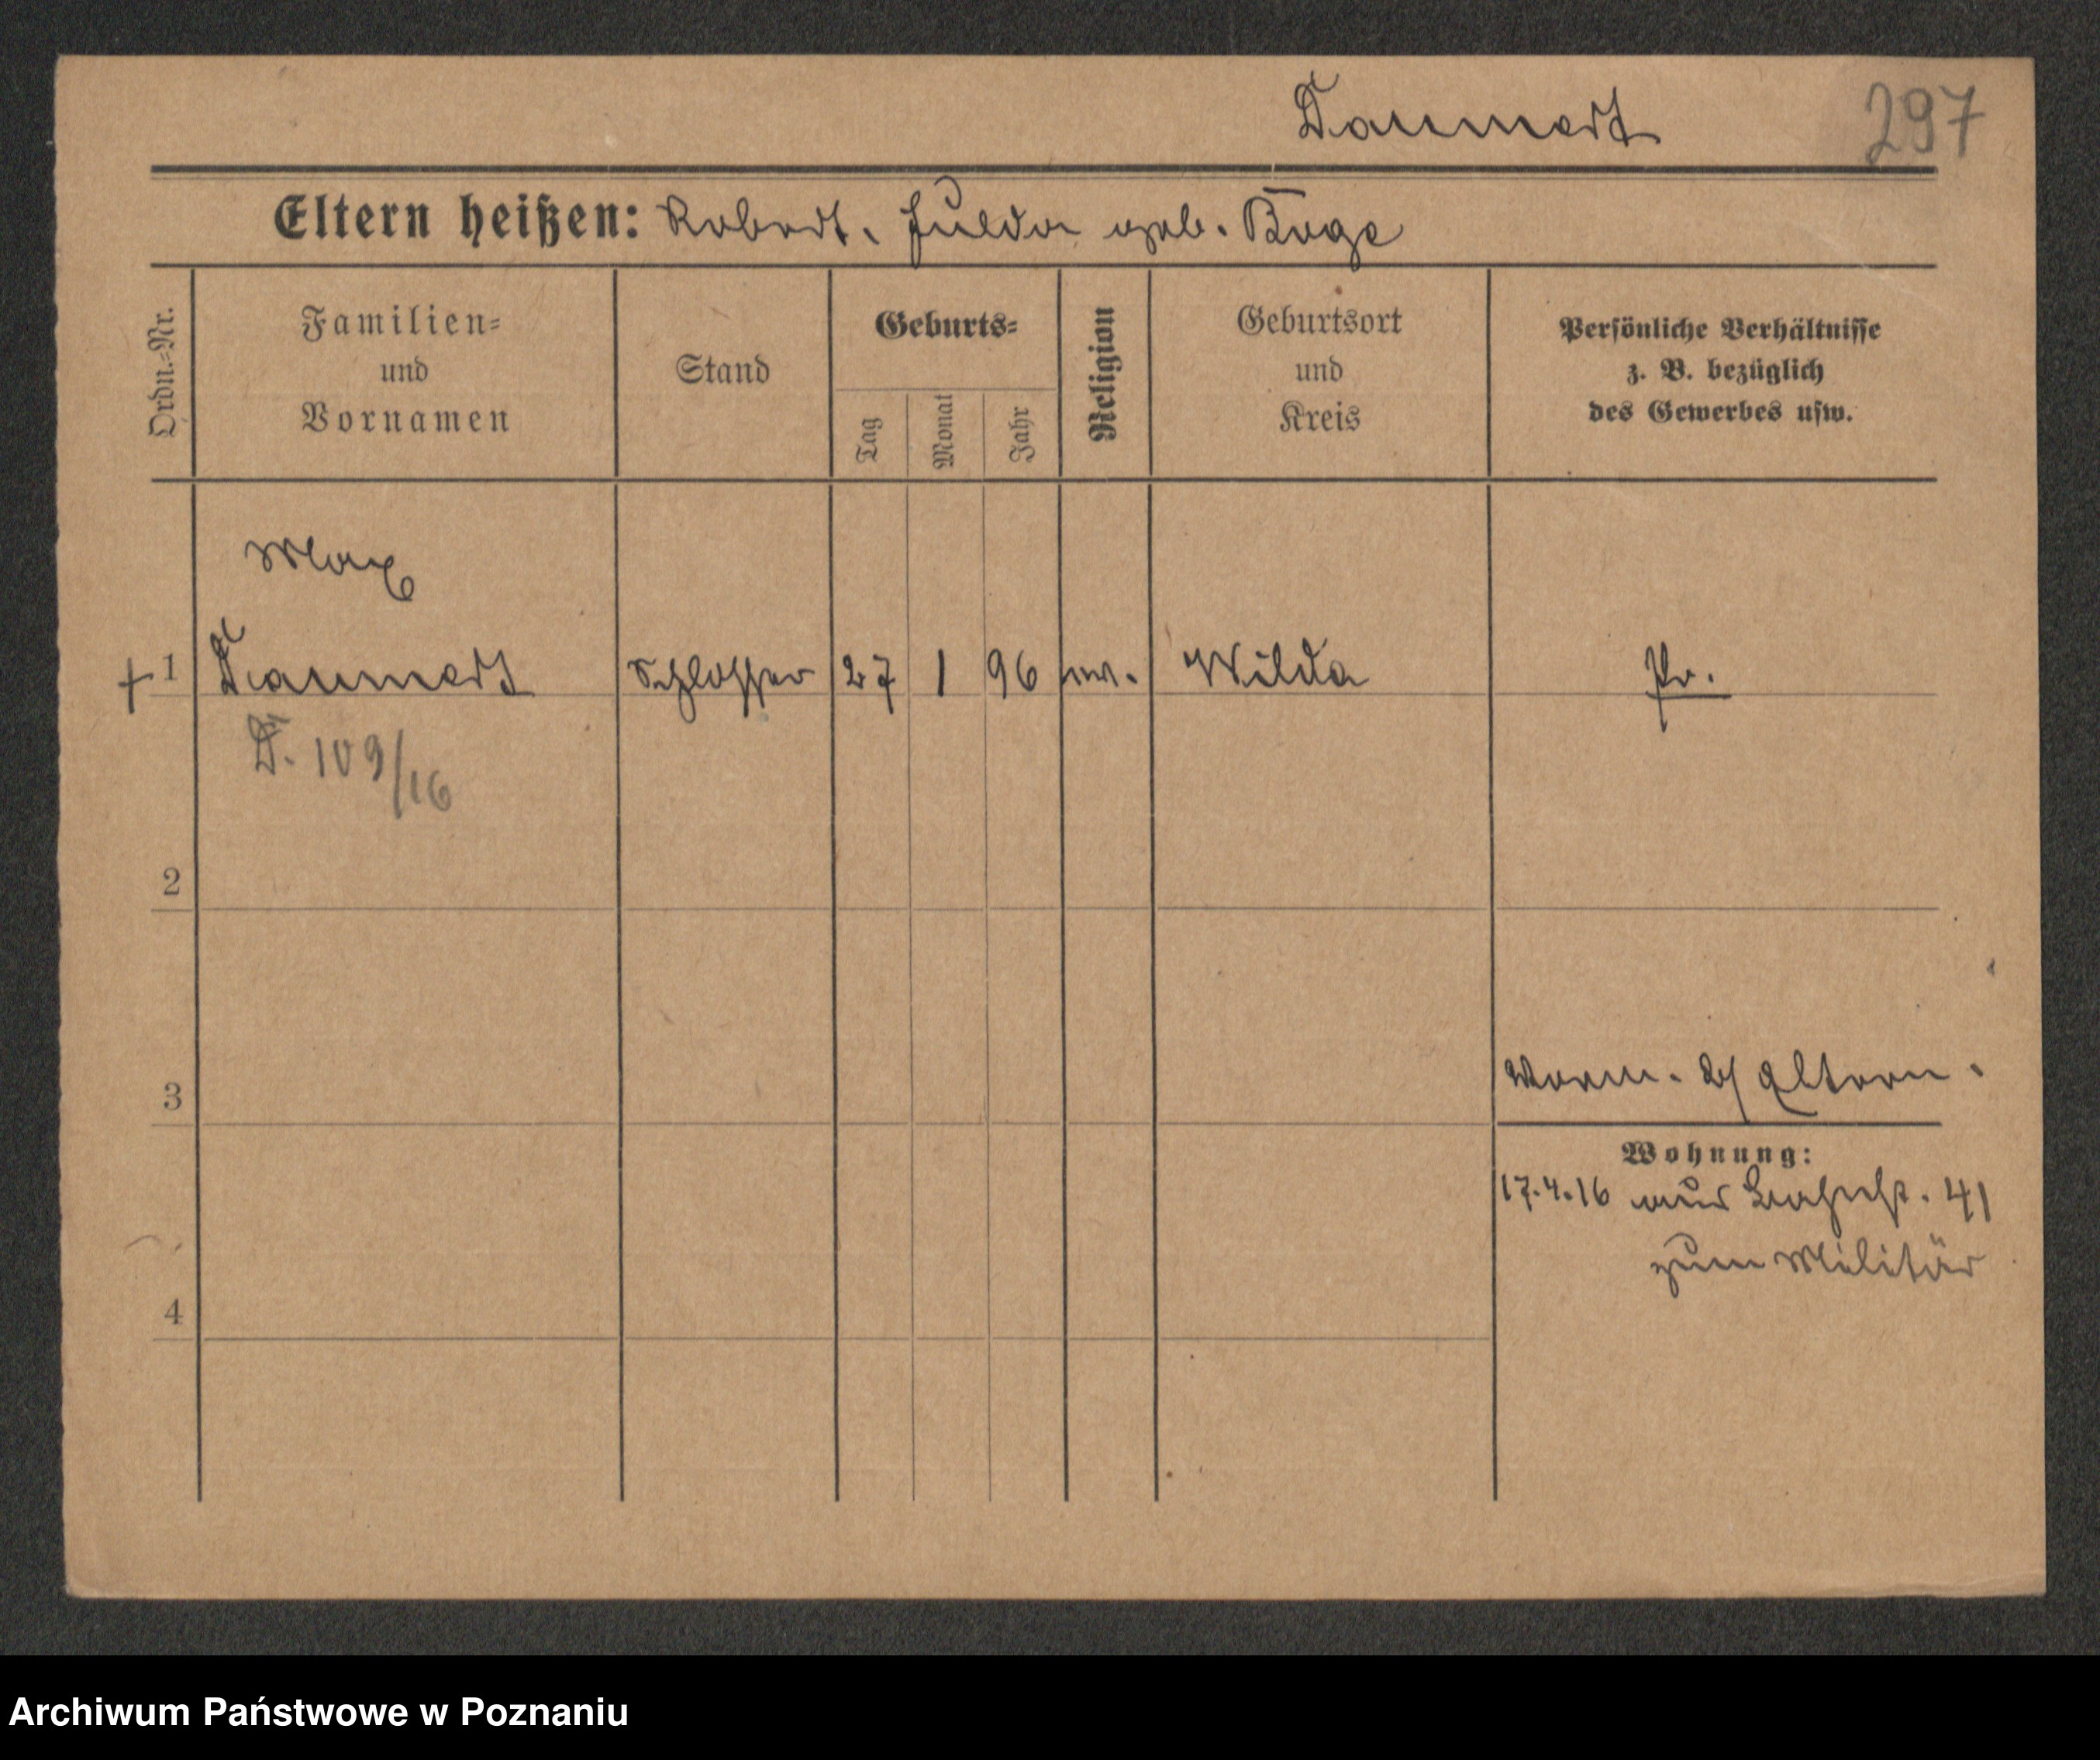 Daumert 297
Eltern heißen: Robert, Hulda geb. Boge
Ordn.-Nr.
Familien-
und
Vornamen
Stand
Geburts-
Tag
Monat
Jahr
Religion
Geburtsort
und
Kreis
Persönliche Verhältnisse
z. B. bezüglich
des Gewerbes usw.
Max
+ 1 Daumert Schlosser 27 1 96 ev. Wilda Pr.
D. 109/16
2
3
b/ Eltern.
Wohnung:
17.4.16 41
zum Militär
4
Archiwum Państwowe w Poznaniu